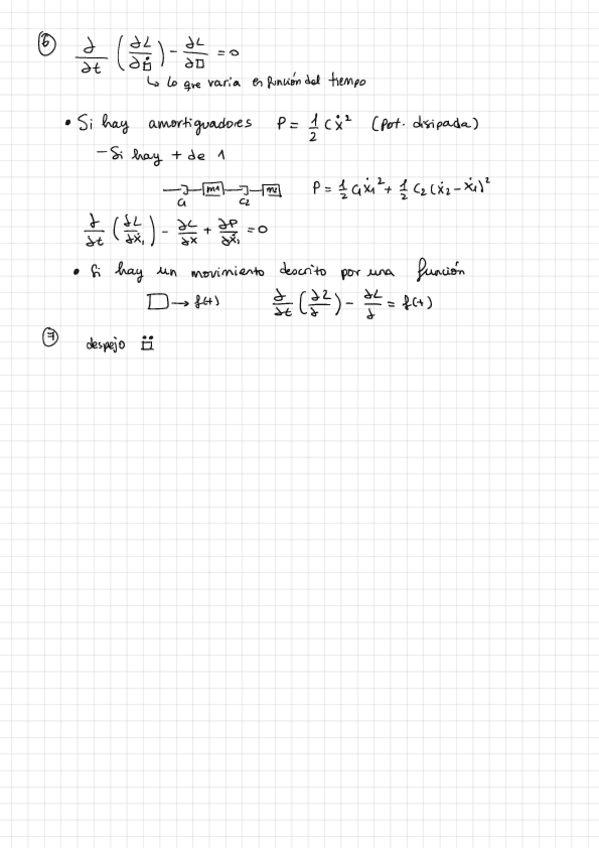 ⑥ ∂/∂t (∂L/∂□̇) - ∂L/∂□ = 0
↳ lo que varia en función del tiempo
• Si hay amortiguadores P = 1/2 c ẋ² (Pot. disipada)
- Si hay + de 1
m1 m2 P = 1/2 c₁ ẋ₁² + 1/2 c₂ (ẋ₂ - ẋ₁)²
c₁ c₂
∂/∂t (∂L/∂ẋ₁) - ∂L/∂x + ∂P/∂ẋ₁ = 0
• Si hay un movimiento descrito por una función
□ → f(t) ∂/∂t (∂L/∂) - ∂L/∂ = f(t)
⑦ despejo □̈